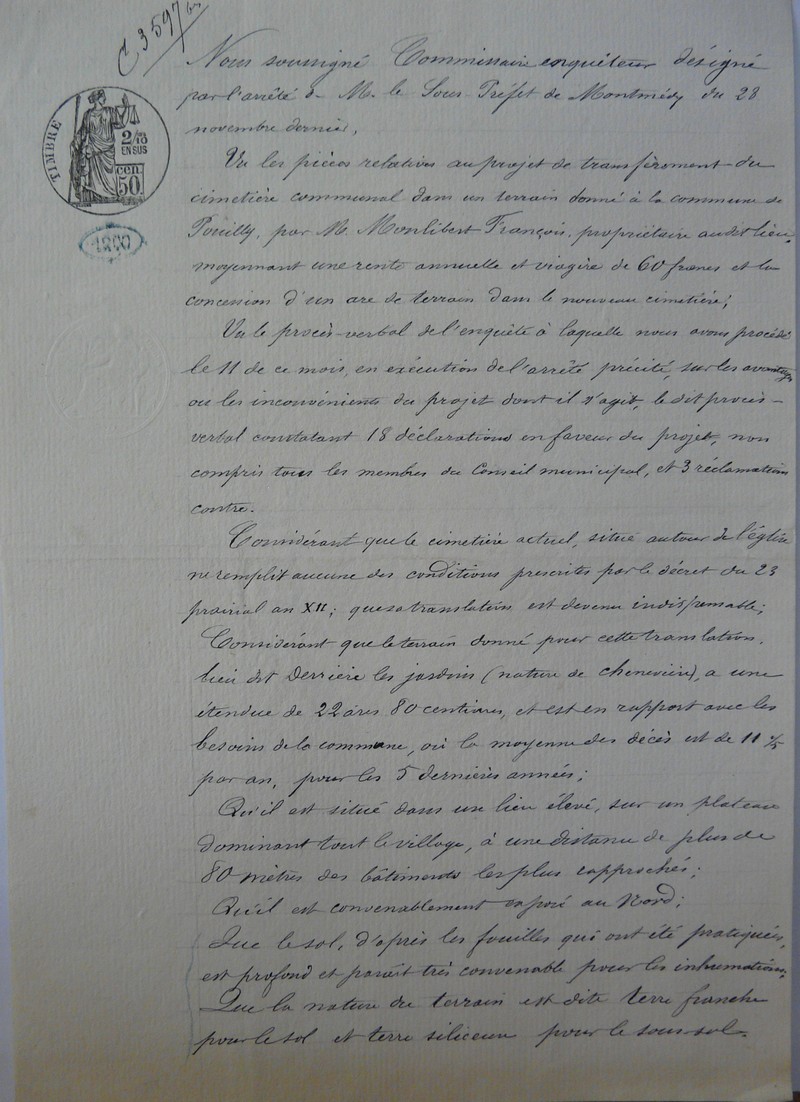 C 3597 bis
TIMBRE
2/10
EN SUS
50 CEN.
Nous soussigné Commissaire enquêteur désigné
par l'arrêté de M. le Sous-Préfet de Montmédy du 28
novembre dernier,
Vu les pièces relatives au projet de transfèrement du
cimetière communal dans un terrain donné à la commune de
Pouilly, par M. Monlibert François, propriétaire audit lieu,
moyennant une rente annuelle et viagère de 60 francs et la
concession d'un are de terrain dans le nouveau cimetière;
Vu le procès-verbal de l'enquête à laquelle nous avons procédé
le 11 de ce mois, en exécution de l'arrêté précité, sur les avantages
ou les inconvénients du projet dont il s'agit, le dit procès-
verbal constatant 18 déclarations en faveur du projet, non
compris tous les membres du Conseil municipal, et 3 réclamations
contre.
Considérant que le cimetière actuel, situé autour de l'église
ne remplit aucune des conditions prescrites par le décret du 23
prairial an XII; que sa translation est devenue indispensable;
Considérant que le terrain donné pour cette translation,
lieu dit Derrière les jardins (nature de chenevière), a une
étendue de 22 ares 80 centiares, et est en rapport avec les
besoins de la commune, où la moyenne des décès est de 11
par an, pour les 5 dernières années;
Qu'il est situé dans un lieu élevé, sur un plateau
dominant tout le village, à une distance de plus de
80 mètres des bâtiments les plus rapprochés;
Qu'il est convenablement exposé au Nord;
Que le sol, d'après les fouilles qui ont été pratiquées,
est profond et paraît très convenable pour les inhumations;
Que la nature du terrain est dite terre franche
pour le sol et terre siliceuse pour le sous-sol.